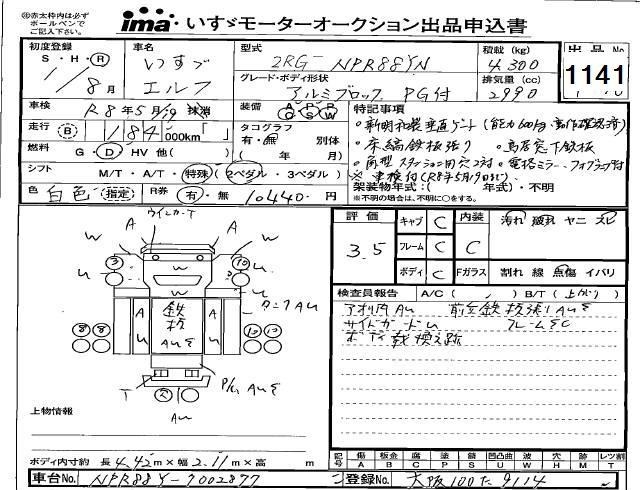 ㊟赤太枠内は必ず
ボールペンで
ご記入下さい
ima いすゞモーターオークション出品申込書
初度登録 車名 型式 積載 (kg) 出品No
S・H・R いすゞ 2RG-NPR88YN 4,300 1141
1/8月 エルフ グレード・ボディ形状 排気量 (cc)
アルミブロック PG付 2990
車検 R8年5月19 抹消 装備 AC PS PW SR 特記事項
走行 B 184,000km「 」 タコグラフ 有・無 別体
・新明和製垂直ゲート(能力600kg・動作確認済)
燃料 G・D・HV 他( ) ( 年 月)
・床縞鉄板張り ・鳥居窓下鉄板
シフト M/T・A/T・特殊(2ペダル・3ペダル)
・角型スタンション用穴2対 ・電格ミラー、フォグランプ付
※車検付(R8年5月19日迄)
色 白色 (指定) R券 有・無 10,440円 架装物年式:( 年式)・不明
※不明の場合は、不明に○をする。
ウインカーT
A A W W
W
3 10
U U
A 鉄板 AUE U
タニアAU
8 8 10 10
T P/L AUE
AU
評価 キャブ C 内装 汚れ 破れ ヤニ スレ
3.5 フレーム C C
ボディ C Fガラス 割れ 線 点傷 イバリ
検査員報告 A/C( / ) B/T(上がり)
アオリ内AU 前立鉄板張りAUE
サイドガードU フレームEC
ボデー載換え跡
上物情報
ボディ内寸約 長4.42m×幅2.11m×高 m
記号 傷 板金 腐 塗 錆 凹凸曲 波 穴 跡 レツ割
A B C P S U W H M T
車台No. NPR88Y-7002877 登録No. 大阪100た9114